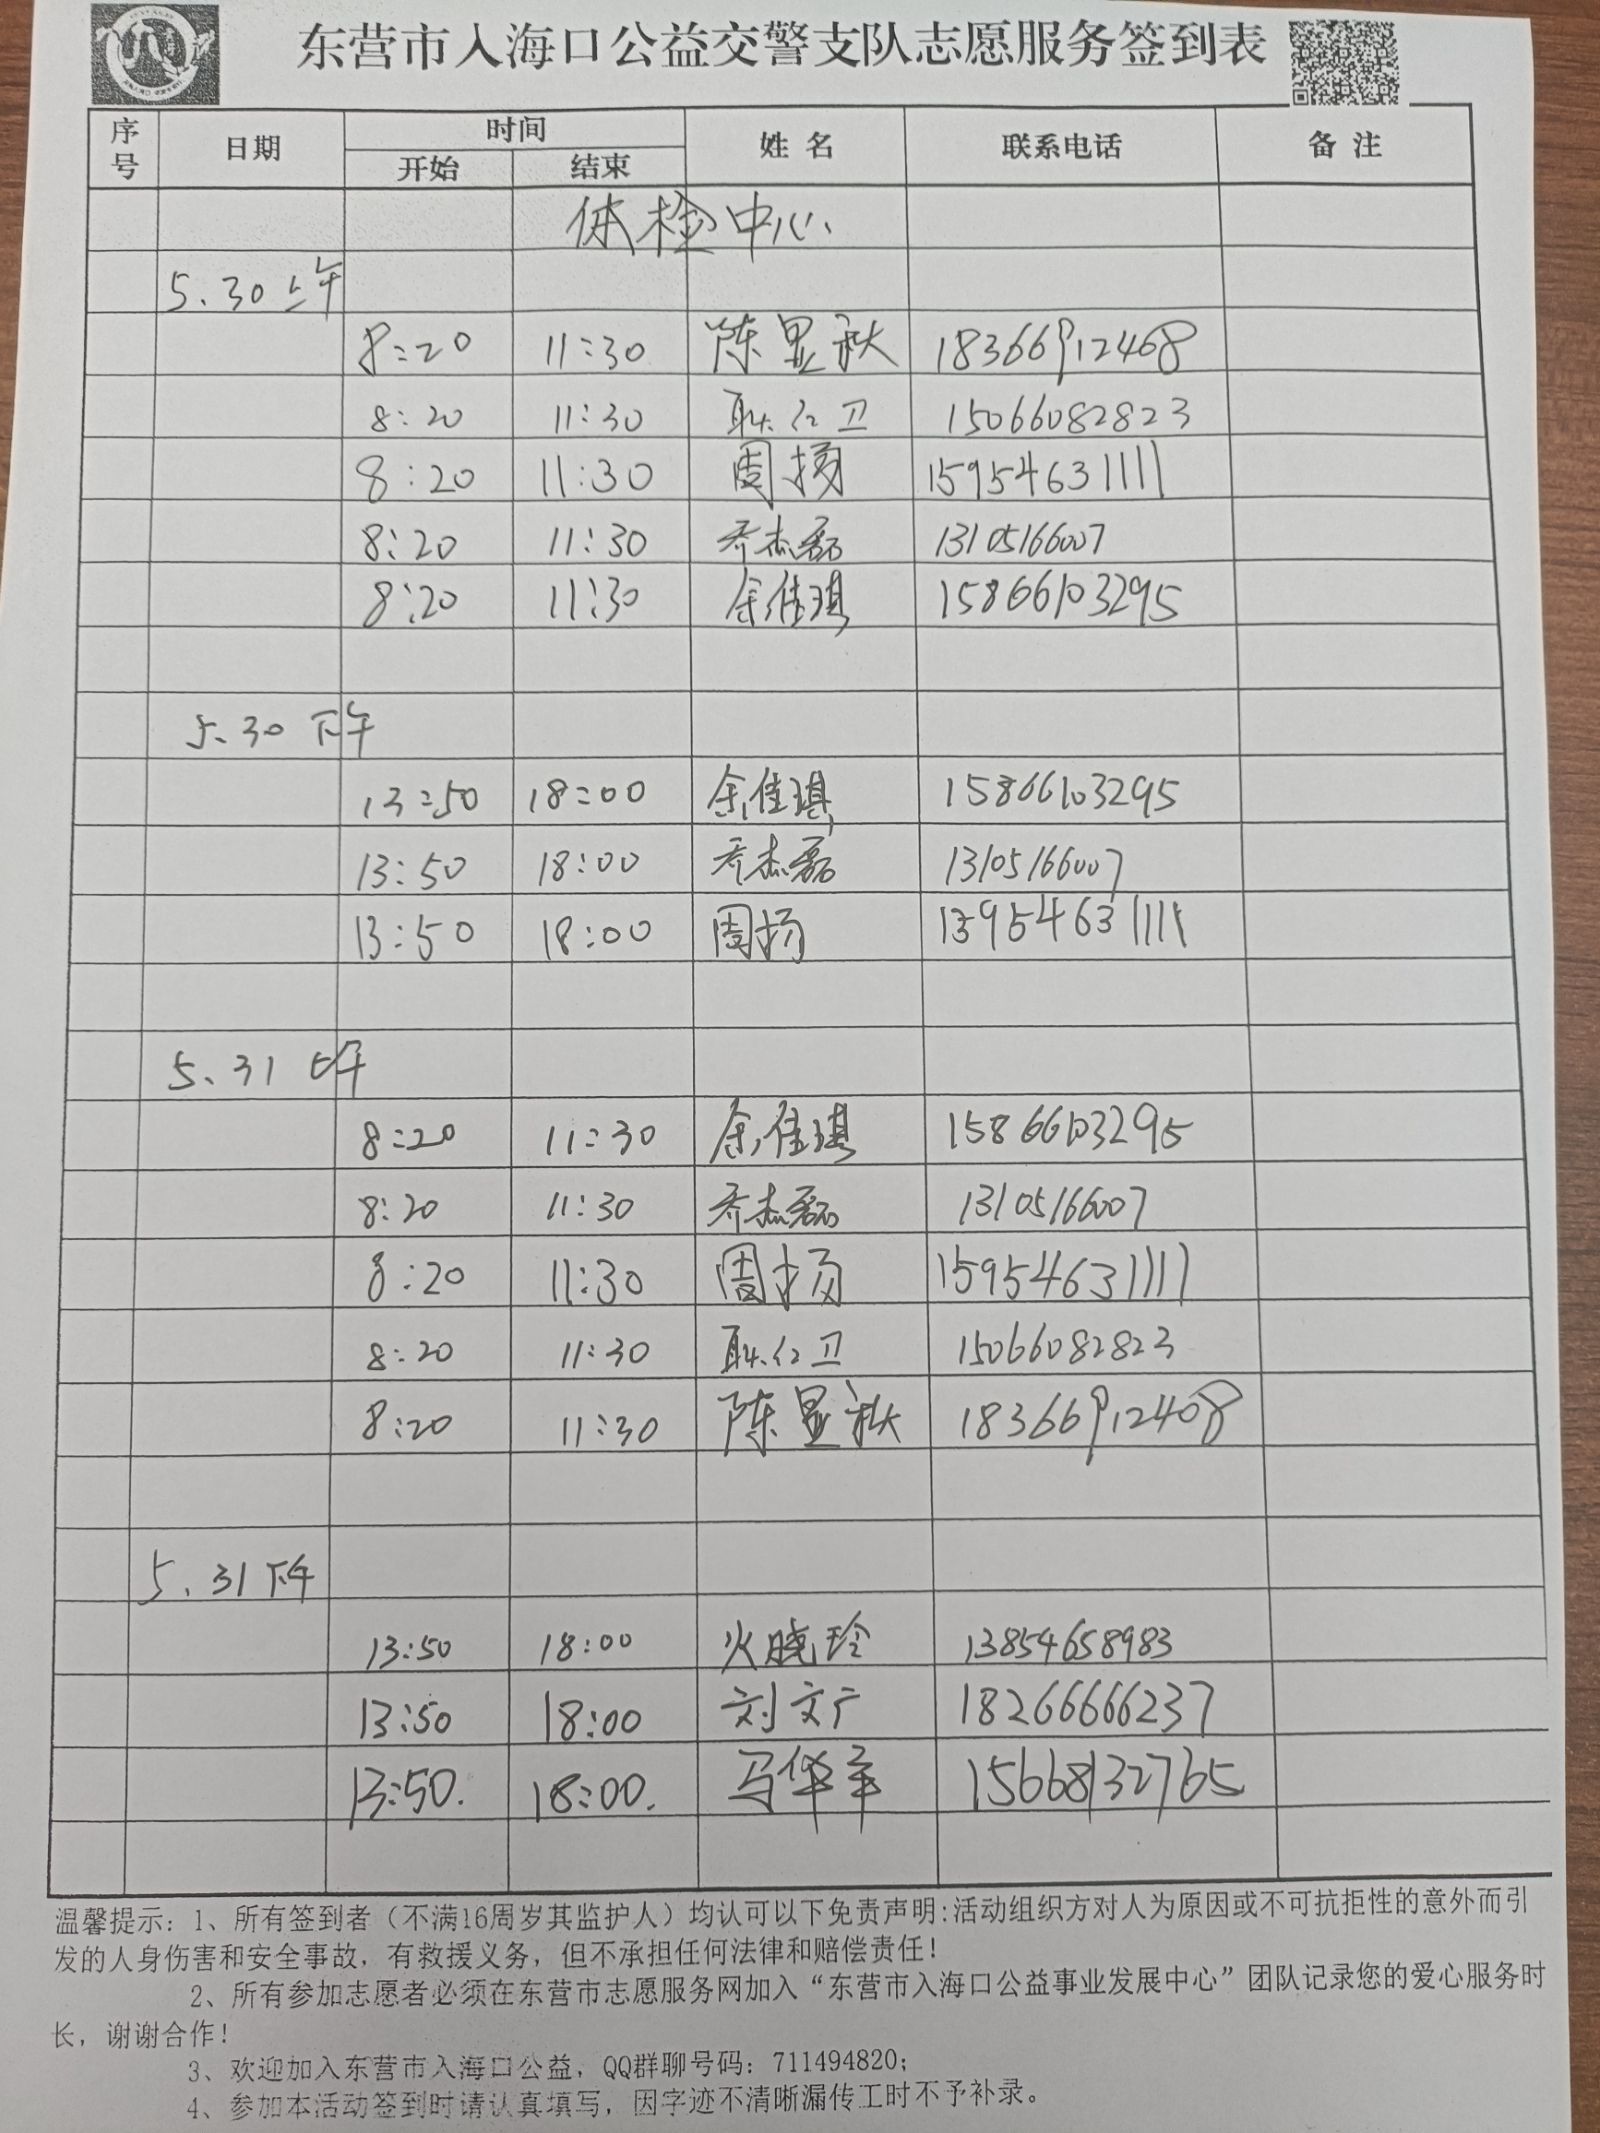 东营市入海口公益交警支队志愿服务签到表
序号 日期 时间 姓名 联系电话 备注
开始 结束
体检中心
5.30上午
8:20 11:30 陈显秋 18366912408
8:20 11:30 耿仁卫 15066082823
8:20 11:30 周扬 15954631111
8:20 11:30 乔杰磊 13105166007
8:20 11:30 余佳琪 15866103295
5.30下午
13:50 18:00 余佳琪 15866103295
13:50 18:00 乔杰磊 13105166007
13:50 18:00 周扬 15954631111
5.31上午
8:20 11:30 余佳琪 15866103295
8:20 11:30 乔杰磊 13105166007
8:20 11:30 周扬 15954631111
8:20 11:30 耿仁卫 15066082823
8:20 11:30 陈显秋 18366912408
5.31下午
13:50 18:00 火晓玲 13854658983
13:50 18:00 刘文广 18266666237
13:50. 18:00. 马华军 15668132765
温馨提示：1、所有签到者（不满16周岁其监护人）均认可以下免责声明:活动组织方对人为原因或不可抗拒性的意外而引
发的人身伤害和安全事故，有救援义务，但不承担任何法律和赔偿责任！
2、所有参加志愿者必须在东营市志愿服务网加入“东营市入海口公益事业发展中心”团队记录您的爱心服务时
长，谢谢合作！
3、欢迎加入东营市入海口公益，QQ群聊号码：711494820；
4、参加本活动签到时请认真填写，因字迹不清晰漏传工时不予补录。